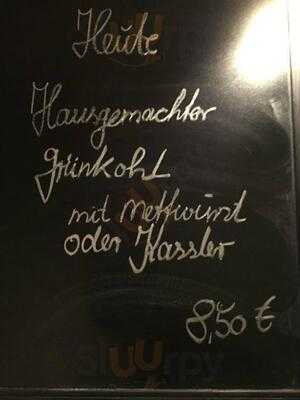 Heute
Hausgemachter
Grünkohl
mit Mettwurst
oder Kassler
8,50 €
sluurpy